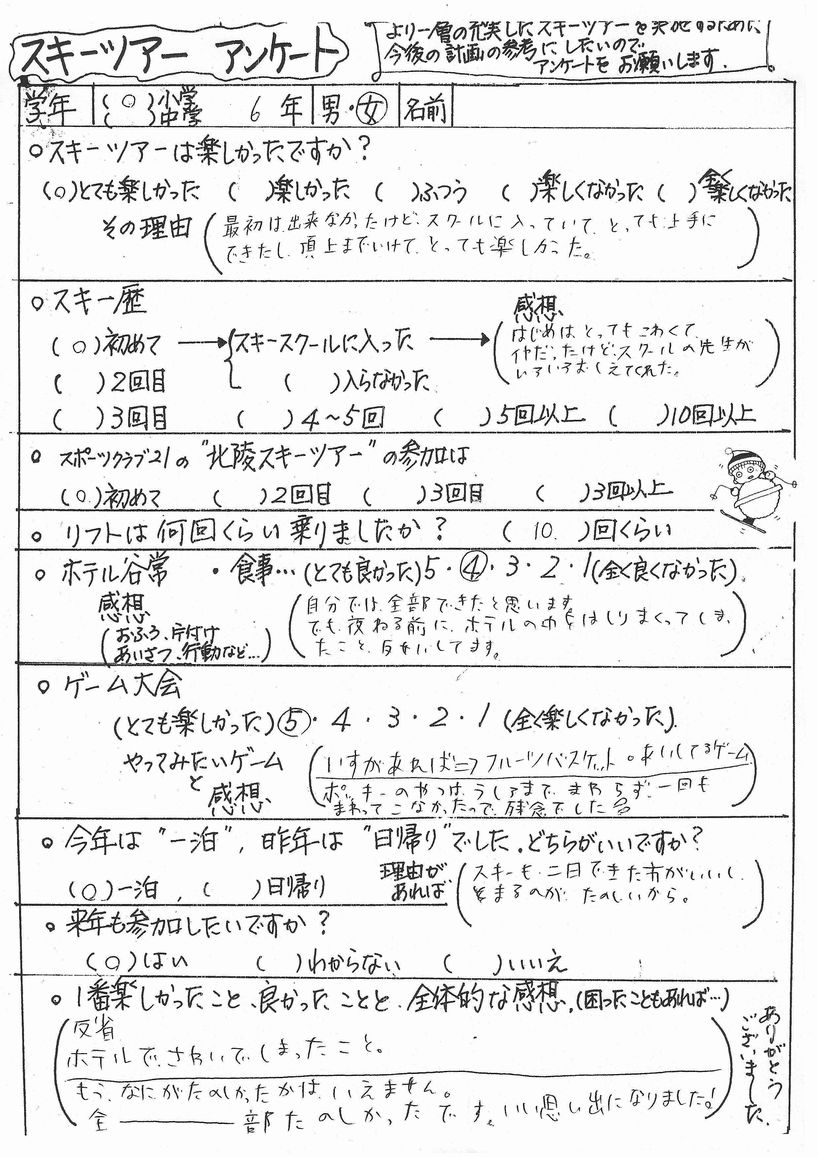 スキーツアー アンケート
より一層の充実したスキーツアーを実施するために
今後の計画の参考にしたいので
アンケートをお願いします.
学年 (○)小学 ( )中学 6年 男・女 名前
○スキーツアーは楽しかったですか？
(○)とても楽しかった ( )楽しかった ( )ふつう ( )楽しくなかった ( )全く楽しくなかった
その理由 (最初は出来なかったけど、スクールに入っていて、とっても上手に
できたし、頂上までいけて、とっても楽しかった。)
○スキー歴
感想
(○)初めて → スキースクールに入った → (はじめは、とってもこわくて、
イヤだったけど、スクールの先生が
いろいろおしえてくれた。)
( )2回目 ( )入らなかった
( )3回目 ( )4〜5回 ( )5回以上 ( )10回以上
○スポーツクラブ21の"北陵スキーツアー"の参加は
(○)初めて ( )2回目 ( )3回目 ( )3回以上
○リフトは何回くらい乗りましたか？ (10.)回くらい
○ホテル谷常 ・食事…(とても良かった)5・④・3・2・1(全く良くなかった)
感想 (自分では、全部できたと思います。
(おふろ、片付け でも、夜ねる前に、ホテルの中をはしりまくってしまっ
あいさつ、行動など…) たこと、反せいしてます。)
○ゲーム大会
(とても楽しかった)⑤・4・3・2・1(全く楽しくなかった).
やってみたいゲーム (いすがあれば⇒フルーツバスケット。あいしてるゲーム
と
感想 ポッキーのやつは、うしろまで、まわらず、一回も
まわってこなかったので、残念でした)
○今年は"一泊", 昨年は"日帰り"でした.どちらがいいですか？
(○)一泊 , ( )日帰り 理由があれば (スキーも、二日できた方がいいし、
とまるのが、たのしいから。)
○来年も参加したいですか？
(○)はい ( )わからない ( )いいえ
○1番楽しかったこと、良かったことと、全体的な感想。(困ったこともあれば…)
(反省
ホテルで、さわいでしまったこと。
もう、なにがたのしかったかは、いえません。
全――――部たのしかったです。いい思い出になりました!)
ありがとう
ございました.